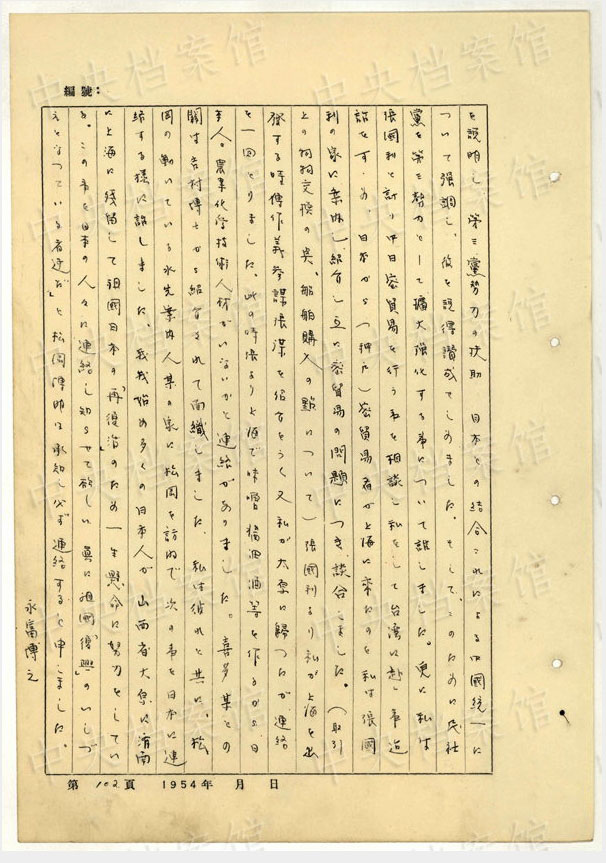 編號:
を説明し第三黨勢力の扶助 日本との結合これによる中國統一に
ついて强調し、彼を説得賛成せしめました。そして、このために民社
黨を第三勢力として擴大强化する事について話しました。更に私は
張國利と計り中日密貿易を行う事を相談し私をして台湾に赴
話をすゝめ、日本から(神戸)密貿易商が上海に来たのを私は張國
利の家に案内し紹介し互に密貿易の問題につき談合しました。(取引
上の物物交換の具、船舶購入の點について)張國利より私が上海を出
發する時傅作義参謀張某を紹介をうく又私が太原に歸つたが連絡
を一回とりました。此の時張より上海で味噌醤油酒等を作るから日
本人の農業化学技術人材がいないかと連絡がありました。喜多某との
關は吉村傅士から紹介されて面識しました。私は彼れと共に、松
岡の働いている水先案内人某の家に松岡を訪ねて次の事を日本に連
絡する様に話しました。我我始め多くの日本人が山西省太原に済南
に上海に残留して祖國日本の「再復活」のため一生懸命に努力をしてい
る。この事を日本の人々に連絡し知らせて欲しい 真に祖國「復興」のいしづ
えとなつている者達だ」と松岡傳助は承知し必ず連絡すると申しました。
永富博之
第 102頁 1954年 月 日
中央档案馆